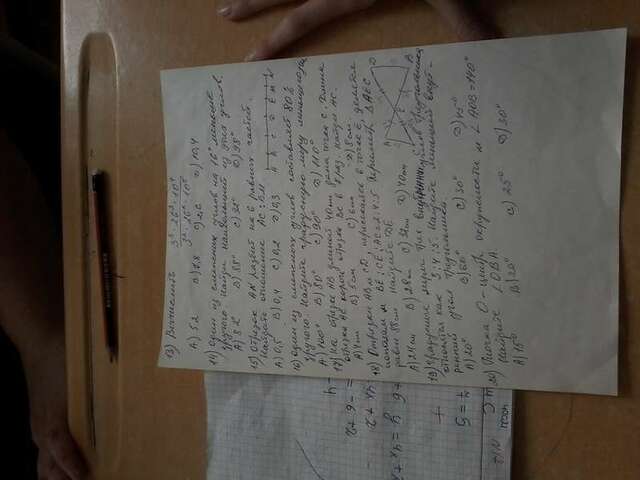 13) Вычислить 3³ · 26³ · 10⁴
А) 5,2 В) 7,8 С) 2,6 D) 10,4
14) Один из смежных углов на 16° меньше
другого. Найди наибольший из этих углов.
А) 82 В) 88° С) 92° D) 98°
15) Отрезок AN разбит на 6 равных частей.
Найдите отношение AC : BM
А) 0,5 В) 0,4 С) 0,2 D) 0,3
16) Один из смежных углов составляет 80%
другого. Найдите градусную меру меньшего
А) 100° В) 80° С) 90° D) 110°
17) На отрезке АВ длиной 40 дана точка С. Длина
отрезка АС короче отрезка ВС в раз. Найди АС.
А) 4 см В) 5 см С) 6 см D) 8 см
18) Отрезки АВ и CD, пересекаясь в точке Е, делятся
пополам и BE : CE : AC = 2 : 4 : 5 Периметр ΔAEC
равен 88 см найдите DE
А) 24 см В) 28 см С) 32 см D) 40
19) Градусные меры трёх внутренних углов треугольника
относятся как 3 : 4 : 5. Найдите меньший внут-
ренний угол треугольника.
А) 20° В) 60° С) 30° D) 45°
20) Точка О - центр окружности и ∠AOB = 140°
Найдите ∠OBA.
А) 15° В) 20° С) 25° D) 30°